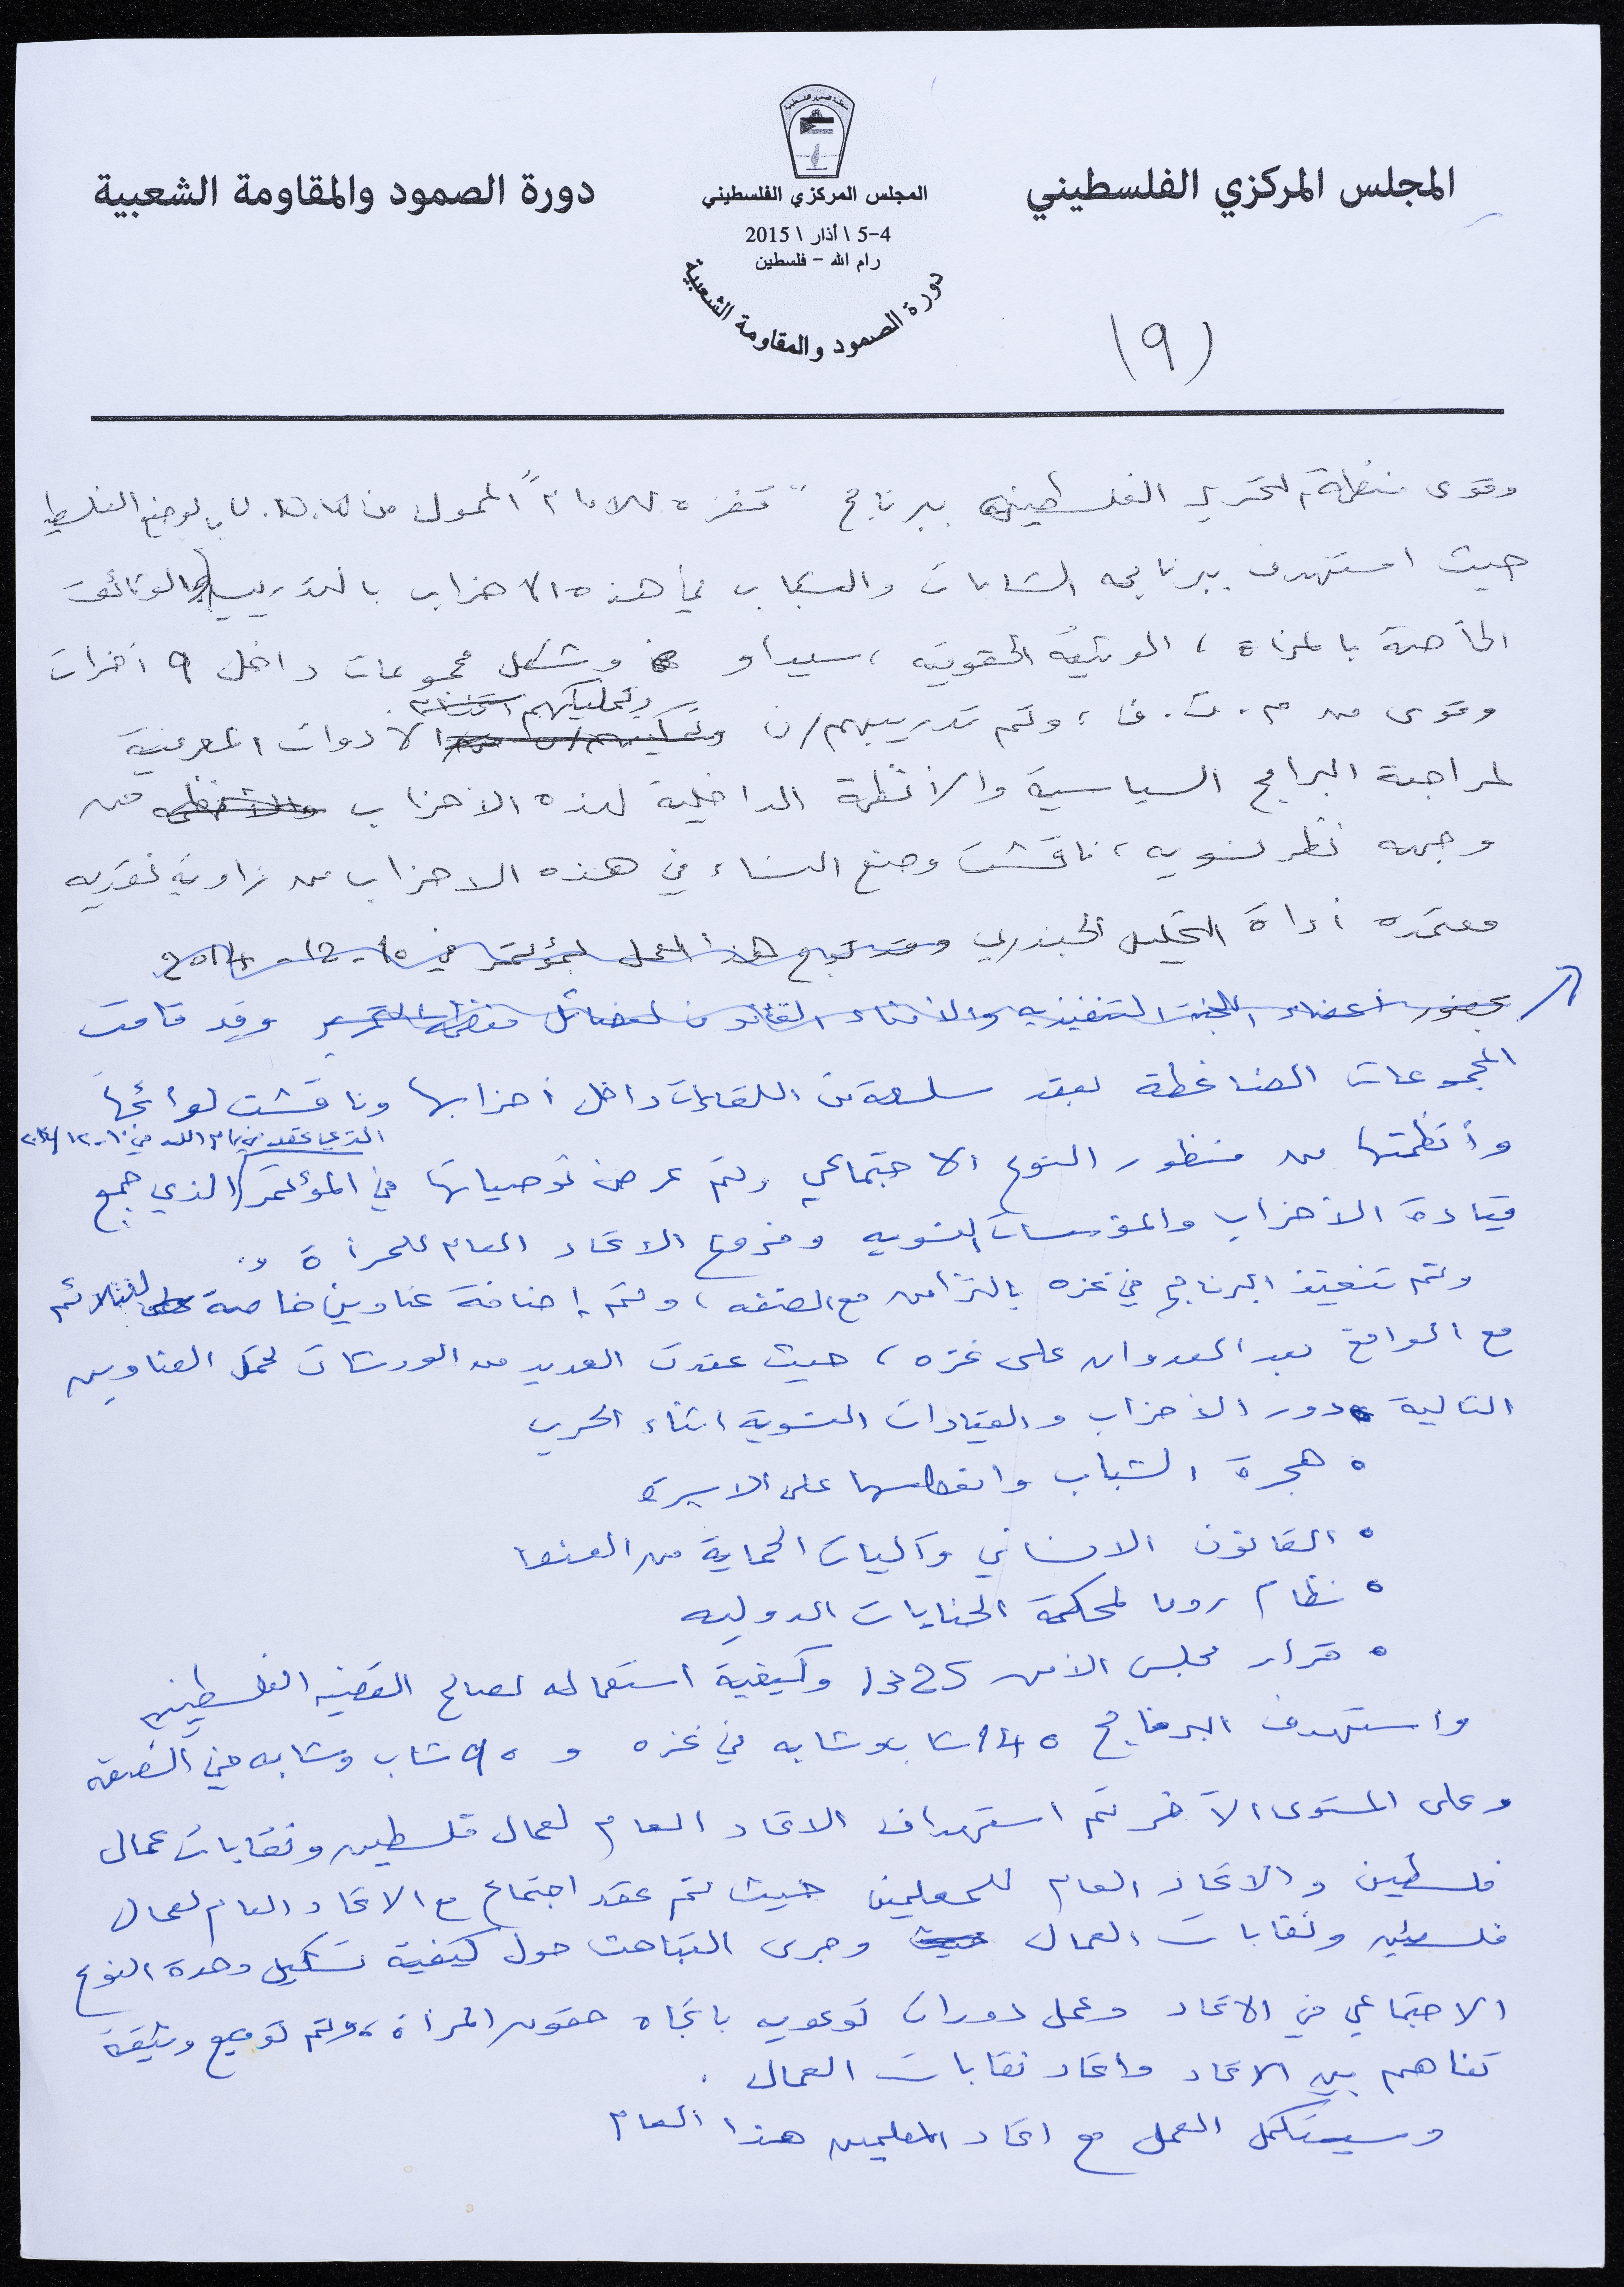 المجلس المركزي الفلسطيني
منظمة التحرير الفلسطينية
المجلس المركزي الفلسطيني
4-5 \ أذار \ 2015
رام الله - فلسطين
دورة الصمود والمقاومة الشعبية
دورة الصمود والمقاومة الشعبية
(9)
وقوى منظمة التحرير الفلسطينيه ببرنامج "قفزه للامام" الممول من
حيث استهدف ببرنامجه الشابات والشباب في هذه الاحزاب بالتدريب بالوثائق
الخاصة بالمرأة ، الوثيقة الحقوقية ، سيداو وشكل مجموعات داخل 9 احزاب
وقوى من م.ت.ف ، وتم تدريبهم/ن وتمليكهم الادوات المعرفية
لمراجعة البرامج السياسية والأنظمة الداخلية لهذه الاحزاب من
وجهه نظر نسويه ، ناقشت وضع النساء في هذه الاحزاب من زاوية نقديه
معتمده أداة التحليل الجندري وقد توج هذا العمل بمؤتمر في 10-12-2014
بحضور أعضاء اللجنة التنفيذيه والامناء العامون لفصائل منظمة التحرير وقد قامت
المجموعات الضاغطة بعقد سلسلة من اللقاءات داخل أحزابها وناقشت لوائحها
الذي عقد في رام الله في ١٠-١٢-٢٠١٤
وأنظمتها من منظور النوع الاجتماعي وتم عرض توصياتها في المؤتمر الذي جمع
قيادة الأحزاب والمؤسسات النسويه وفروع الاتحاد العام للمرأة .
وتم تنفيذ البرنامج في غزه بالتزامن مع الضفه ، وتم إضافة عناوين خاصة لتتلائم
مع الواقع بعد العدوان على غزه ، حيث عقدت العديد من الورشات تحمل العناوين
التالية • دور الأحزاب والقيادات النسوية اثناء الحرب
• هجرة الشباب وانعكاسها على الاسرة
• القانون الانساني وآليات الحماية من العنف
• نظام روما لمحكمة الجنايات الدوليه
• قرار مجلس الأمن 1325 وكيفية استعماله لصالح القضيه الفلسطينيه
واستهدف البرنامج 140 شاب وشابه في غزه و 90 شاب وشابه في الضفة
وعلى المستوى الآخر تم استهداف الاتحاد العام لعمال فلسطين ونقابات عمال
فلسطين والاتحاد العام للمعلمين حيث تم عقد اجتماع مع الاتحاد العام لعمال
فلسطين ونقابات العمال حيث وجرى التباحث حول كيفية تشكيل وحدة النوع
الاجتماعي في الاتحاد وعمل دورات توعويه باتجاه حقوق المرأة ، وتم توقيع وثيقة
تفاهم بين الاتحاد واتحاد نقابات العمال .
وسيستكمل العمل مع اتحاد المعلمين هذا العام